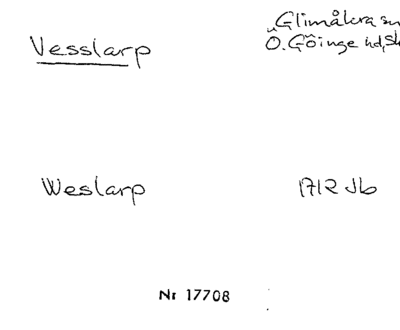 Vesslarp
„Glimåkra sn
Ö. Göinge hd, Sk
Weslarp
1712 Jb
Nr 17708